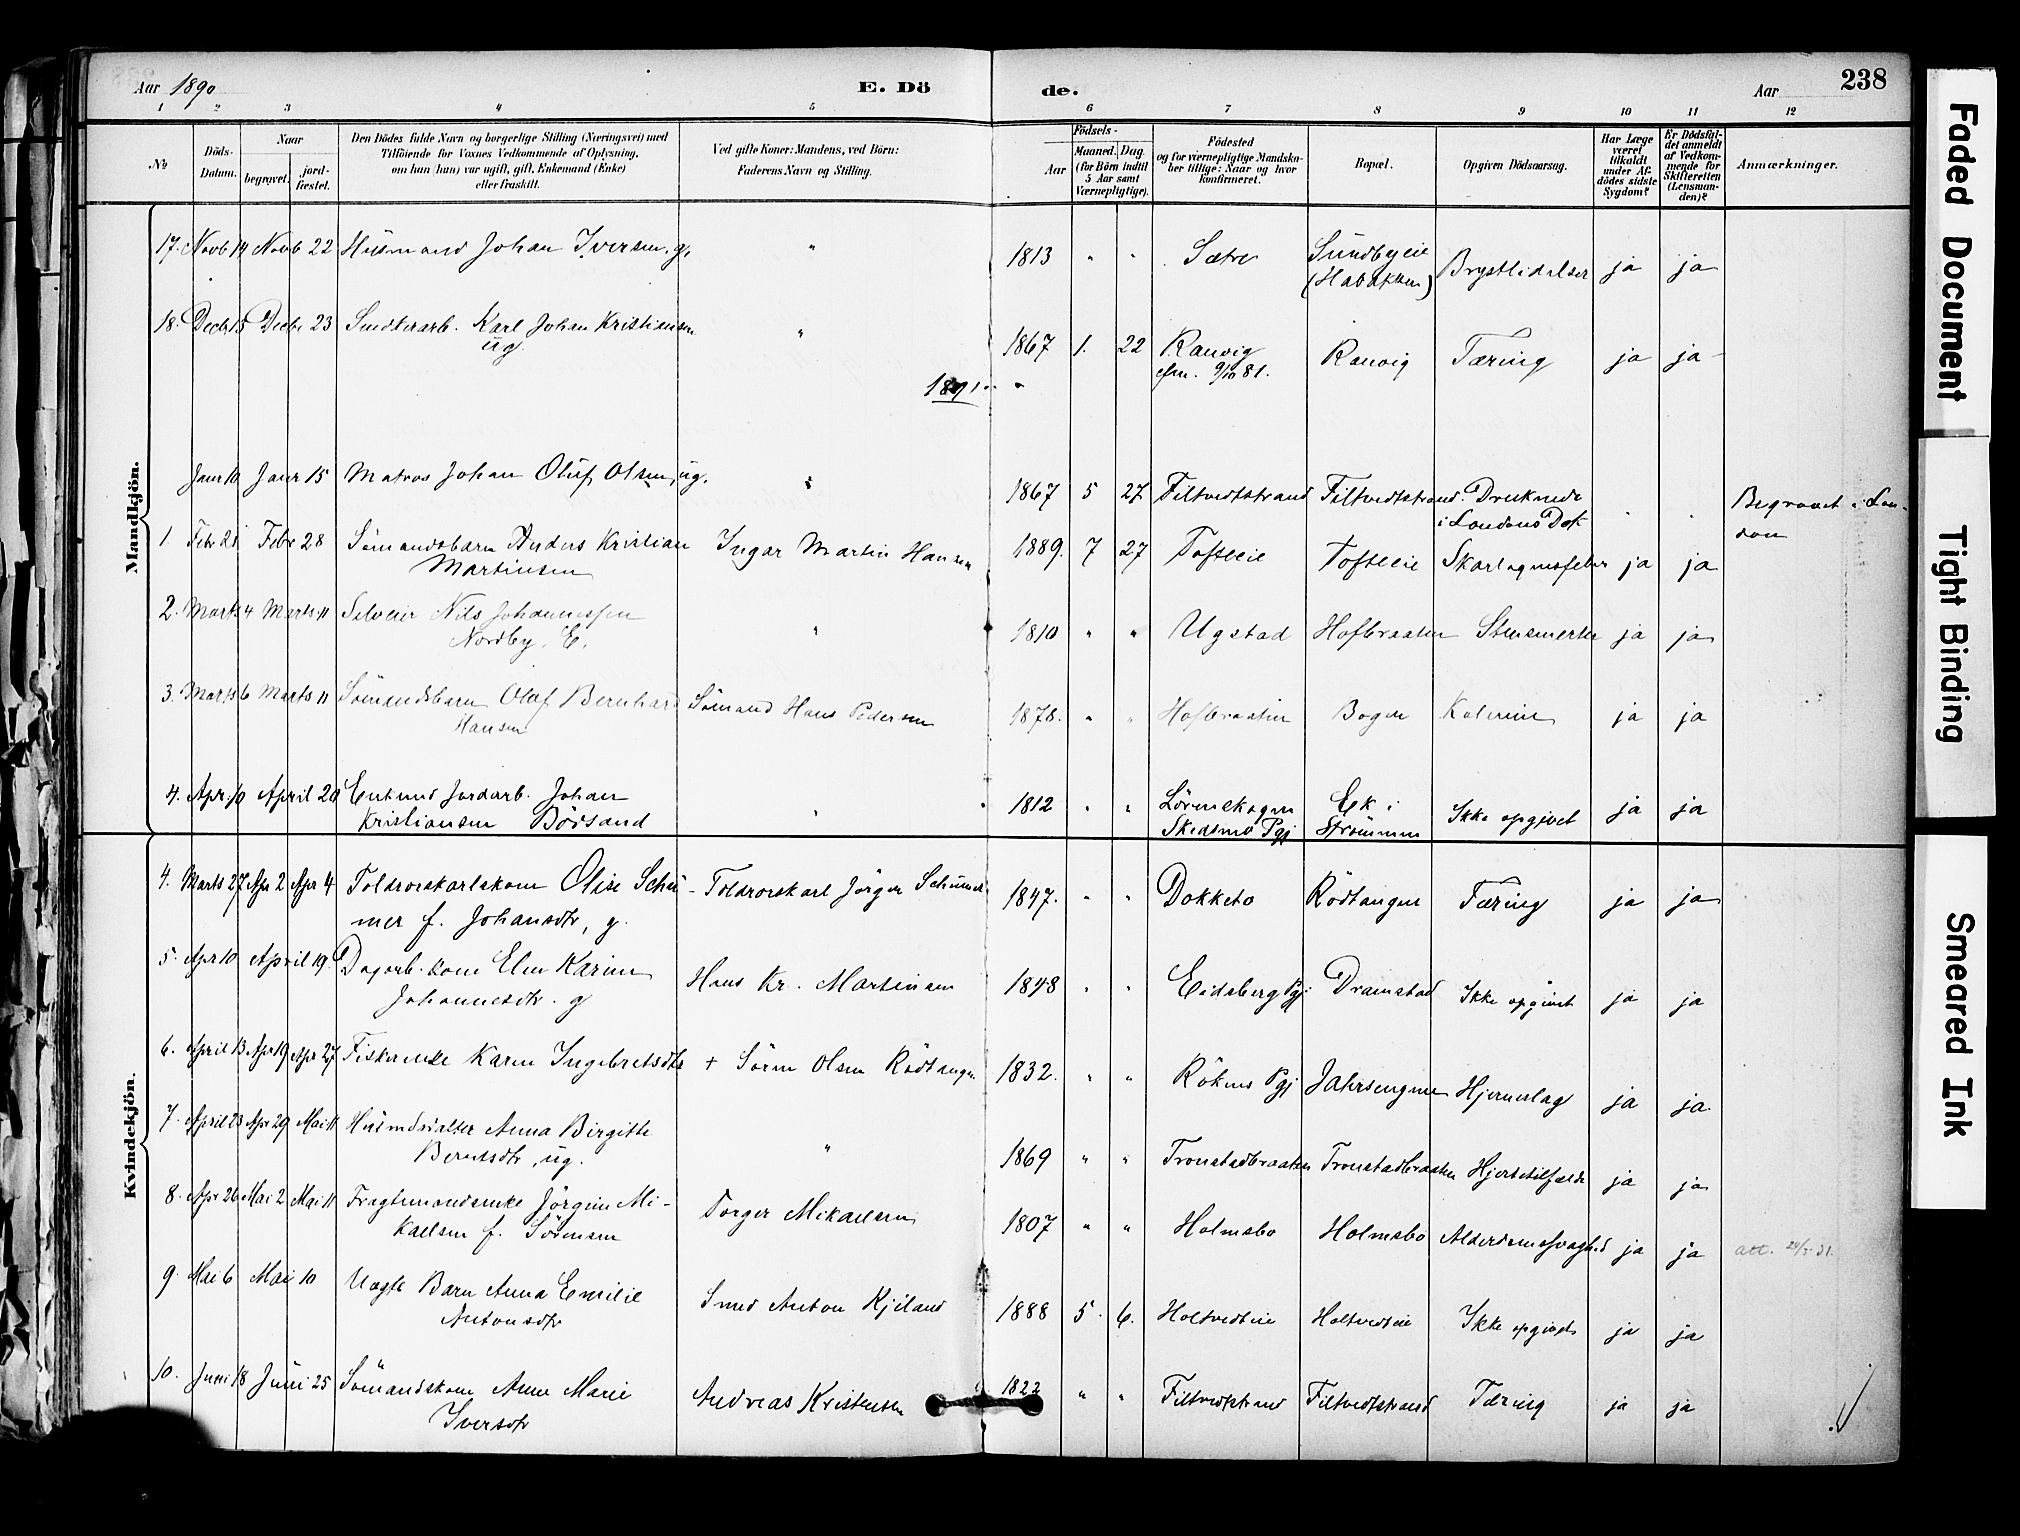 Aar 1890 E. Dö de. Aar 238
1 2 3 4 5 6 7 8 9 10 11 12
No
Döds-Datum.
Naar begravet. jordfæstet.
Den Dödes fulde Navn og borgerlige Stilling (Næringsvei) med
Tilföiende for Voxnes Vedkommende af Oplysning,
om han (hun) var ugift, gift, Enkemand (Enke)
eller fraskilt.
Ved gifte Koner: Mandens, ved Börn:
Faderens Navn og Stilling.
Födsels-
Aar Maaned. Dag.
(for Börn indtil
5 Aar samt
Værnepligtige).
Födested
og for værnepligtige Mandska-
ber tillige: Naar og hvor
konfirmeret.
Bopæl.
Opgiven Dödsaarsag.
Har Læge
været
tilkaldt
under Af-
dödes sidste
Sygdom?
Er Dödsfal-
det anmeldt
af Vedkom-
mende for
Skifteretten
(Lensman-
den)?
Anmærkninger.
Mandkjön.
17. Novb 14 Novb 22 Husmand Johan Iversen, g. " 1813 " " Sætre Sundbyeie (Habakken) Brystlidelser ja ja
18. Decb 15 Decbr 23 Smukerarb. Karl Johan Kristiansen ug. " 1867 1. 22 Ranvig cfm. 9/10 81. Ranvig Tæring ja ja
1891
Janr 10 Janr 15 Matros Johan Oluf Olsen, ug. " 1867 5 27 Filtvedtstrand Filtvedtstrand. Druknede i Londons Dok " " Begravet i Lon-
don
1. Febr 21 Febr 28 Sömandsbarn Anders Kristian Martinsen Ingar Martin Hansen 1889. 7 27 Tofteeie Tofteeie Skarlagensfeber ja ja
2. Marts 4 Marts 11 Selveier Nils Johannessen Nordby, E. " 1810 " " Ugstad Hofbraaten Stensmerter ja ja
3. Marts 6 Marts 11 Sömandsbarn Olaf Bernhard Hansen Sömand Hans Pedersen 1878. " " Hofbraaten Bogen Kolerine ja ja
4. Apr. 10 April 20 Enkmd Jordarb. Johan Kristiansen Börsand " 1812 " " Lörenskogen Skedsmo Pgj Ek i Strömmen Ikke opgivet ja ja
Kvindekjön.
4. Marts 27 Apr 2 Apr 4 Toldrorskarlskone Olise Schu-
mer f. Johansdtr, g. Toldrorskarl Jörgen Schumer 1847. " " Dokketo Rödtangen Tæring ja ja
5. Apr 10 April 19. Dagarb. kone Elen Karine Johannesdtr. g Hans Kr. Martinsen 1848 " " Eidsberg Pgj Dramstad Ikke opgivet ja ja
6. April 13 Apr 19 Apr 27 Fiskerenke Karen Ingebretsdtr + Sören Olsen Rödtangen 1832. " " Rökens Pgj Jahrsengene Hjerneslag ja ja
7. April 23 Apr 29 Mai 11 Husmdsdatter Anna Birgitte Berntsdtr, ug. " 1869 " " Tronstadbraaten Tronstadbraaten Hjertetilfælde ja ja
8. Apr 26 Mai 2 Mai 11 Fragtemandsenke Jörgine Mi-
kaelsen f. Sörensen Torger Mikaelsen 1807 " " Holmsbo Holmsbo Alderdomssvaghed ja ja att. 24/5 31.
9. Mai 6 Mai 10 Uægte Barn Anna Emilie Antonsdtr Smed Anton Kjiland 1888 5. 6. Holtvedteie Holtvedteie Ikke opgivet ja ja
10. Juni 18 Juni 25 Sömandskone Anne Marie Iversdtr Andreas Kristensen 1822 " " Filtvedtstrand Filtvedtstrand Tæring ja ja
Faded Document
Tight Binding
Smeared Ink